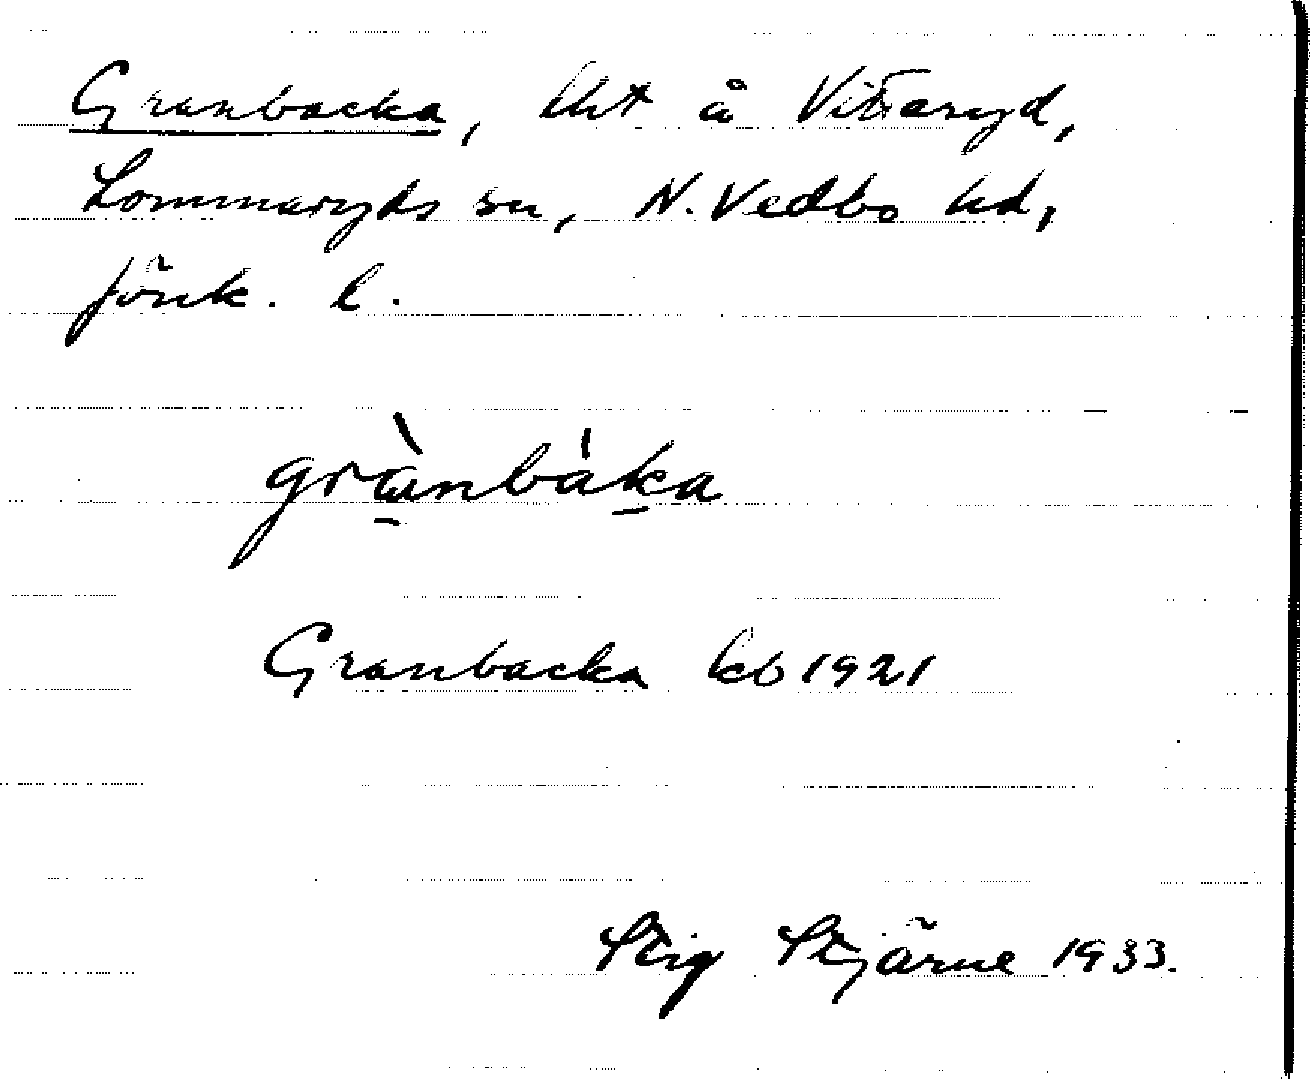 Granbacka, lht å Vittaryd,
Lommaryds sn, N. Vedbo hd,
Jönk. l.
grànbáka
Granbacka kb 1921
Stig Stjärne 1933.